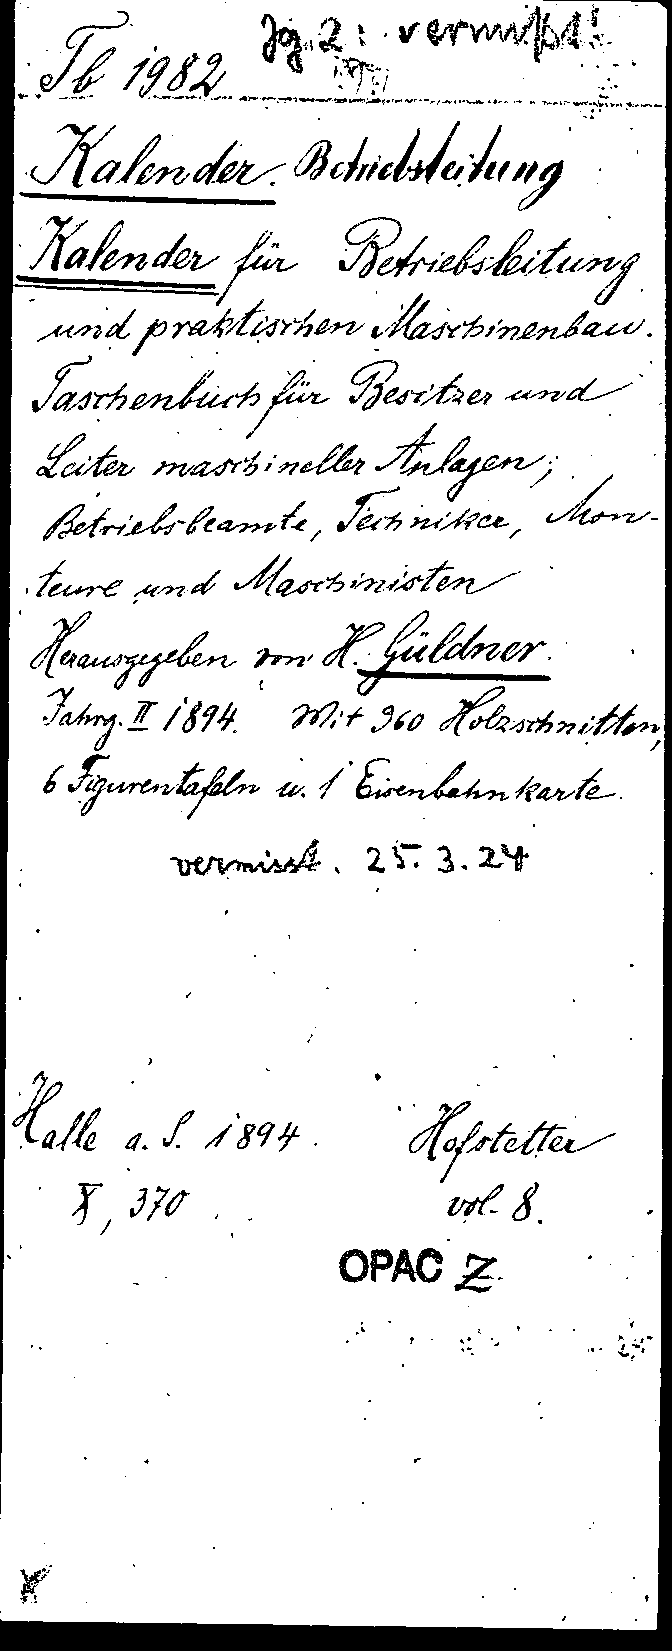 Jg. 2: vermißt!
Tb 1982
Kalender. Betriebsleitung
Kalender für Betriebsleitung
und praktischen Maschinenbau.
Taschenbuch für Besitzer und
Leiter maschineller Anlagen;
Betriebsbeamte, Techniker, Mon-
teure und Maschinisten
Herausgegeben von H. Güldner.
Jahrg. II 1894. Mit 960 Holzschnitten,
6 Figurentafeln u. 1 Eisenbahnkarte.
vermisst. 25.3.24
Halle a. S. 1894. Hofstetter
X, 370 vol. 8.
OPAC Z